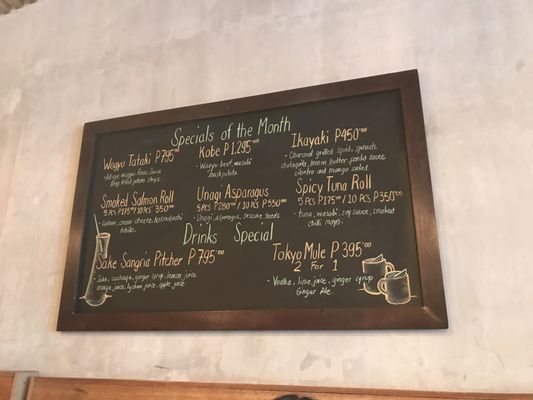 Specials of the Month
Wagyu Tataki P795.00
Wagyu, Ponzu Sauce
Deep Fried potato strips.
Kobe P1,295.00
- Wagyu beef, wasabi
mash potato.
Ikayaki P450.00
- Charcoal grilled squid, spinach,
lemon butter, ponzu sauce
cilantro and mango salad
Smoked Salmon Roll
5 pcs P175.00/10 pcs 350.00
- Salmon, cream cheese,
Unagi Asparagus
5 pcs P280.00/10 pcs P550.00
- Unagi, asparagus, sesame seeds
Spicy Tuna Roll
5 pcs P175.00/10 pcs P350.00
- tuna, wasabi, soy sauce, smoked
chilli mayo.
Drinks Special
Sake Sangria Pitcher P795.00
- Sake, ginger syrup, lemon juice
orange juice, lychee juice, apple juice
Tokyo Mule P395.00
2 For 1
- Vodka, lime juice, ginger syrup
Ginger Ale.